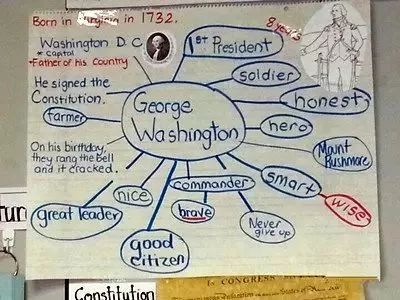 Born in Virginia in 1732.
8 years
Washington D.C
* Capital
*Father of his Country
1st President
soldier
He signed the
Constitution.
honest
George
Washington
farmer
hero
On his birthday,
they rang the bell
and it cracked.
Mount
Rushmore
commander
smart
nice
wise
brave
great leader
Never
give up
good
citizen
IN CONGRESS
Constitution